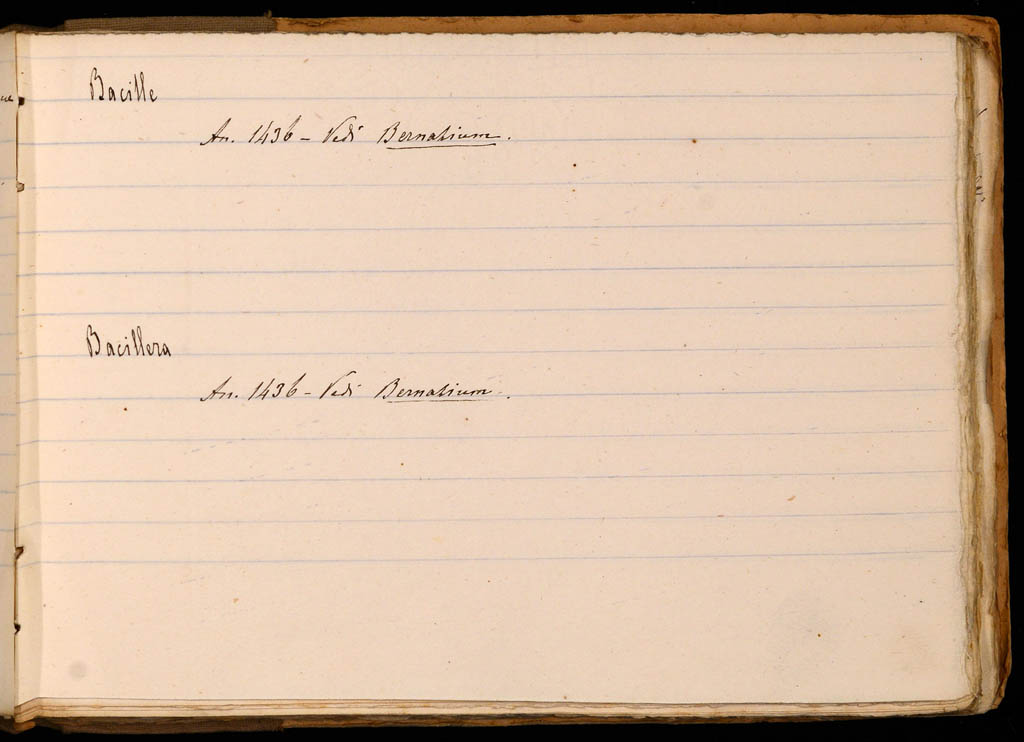 Bacille
An. 1436 - Vedi Bernatium.
Bacillera
An. 1436 - Vedi Bernatium.